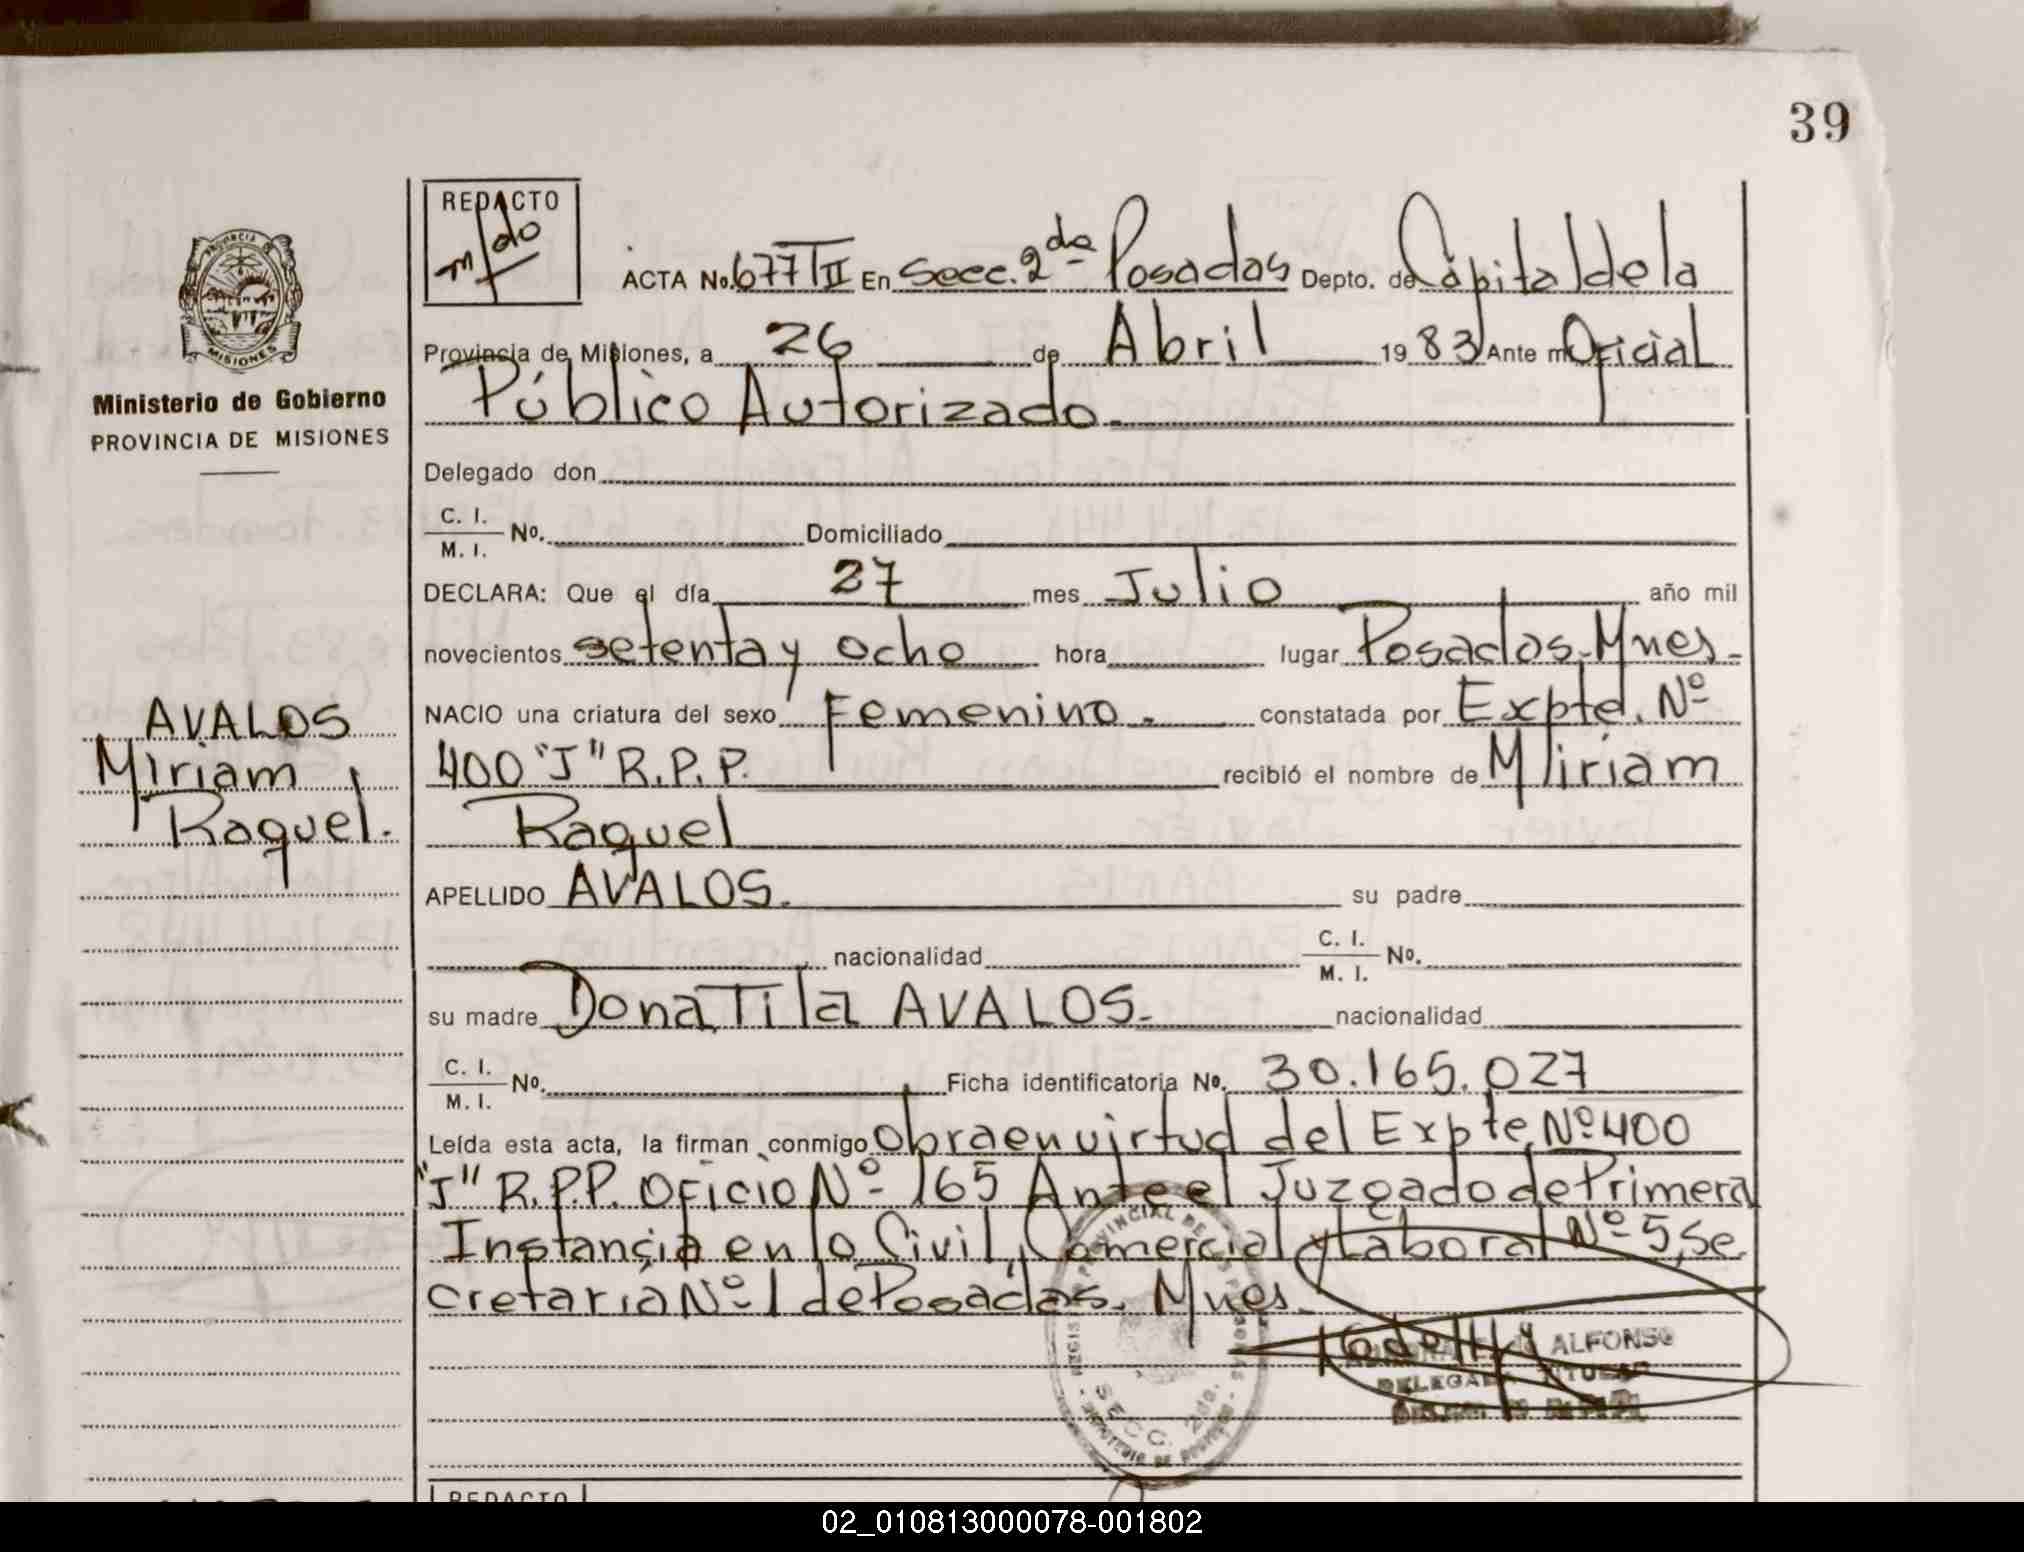 39
REDACTO
ACTA No. 677 T II En Secc. 2da Posadas Depto. de Capital de la
Provincia de Misiones, a 26 de Abril 1983 Ante mi Oficial
Público Autorizado.
PROVINCIA DE
MISIONES
Ministerio de Gobierno
PROVINCIA DE MISIONES
Delegado don
C. I.
M. I. No. Domiciliado
DECLARA: Que el día 27 mes Julio año mil
novecientos setenta y ocho hora lugar Posadas. Mnes.
NACIO una criatura del sexo Femenino. constatada por Expte. Nº
400 "J" R.P.P. recibió el nombre de Miriam
Raquel
AVALOS
Miriam
Raquel.
APELLIDO AVALOS. su padre
nacionalidad C. I.
M. I. No.
su madre Donatila AVALOS. nacionalidad
C. I.
M. I. No. Ficha identificatoria No. 30.165.027
Leída esta acta, la firman conmigo Obra en virtud del Expte. Nº 400
"J" R.P.P. Oficio Nº 165 Ante el Juzgado de Primera
Instancia en lo Civil, Comercial y Laboral Nº 5, Se
cretaria Nº 1 de Posadas. Mnes.
ALFONSO
DELEGADA TITULAR
SECC. 2da.
REDACTO
02_010813000078-001802